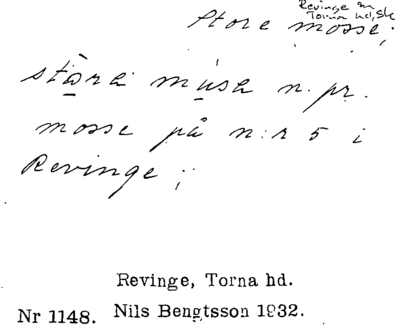 Revinge sn
Torna hd, Sk
Store mosse;
stǫra mu̱sa n. pr.
mosse på n:r 5 i
Revinge;
Revinge, Torna hd.
Nr 1148. Nils Bengtsson 1932.